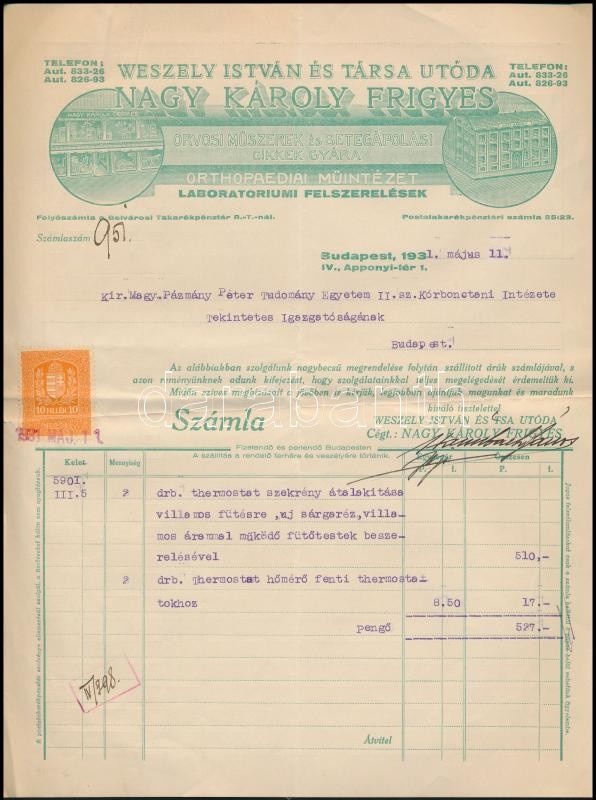 TELEFON:
Aut. 833-26
Aut. 826-93
WESZELY ISTVÁN ÉS TÁRSA UTÓDA
TELEFON:
Aut. 833-26
Aut. 826-93
NAGY KÁROLY FRIGYES
NAGY KÁROLY FRIGYES
ORVOSI MŰSZEREK és BETEGÁPOLÁSI
CIKKEK GYÁRA
ORTHOPAEDIAI MŰINTÉZET
LABORATORIUMI FELSZERELÉSEK
Folyószámla a Belvárosi Takarékpénztár R.-T.-nál.
Postatakarékpénztári számla 25123.
Számlaszám 951.
Budapest, 1931. május 11.
IV., Apponyi-tér 1.
Kir.Magy.Pázmány Péter Tudomány Egyetem II.sz.Kórbonctani Intézete
Tekintetes Igazgatóságának
Budapest.
Az alábbiakban szolgálunk nagybecsű megrendelése folytán szállított áruk számlájával, s
azon reményünknek adunk kifejezést, hogy szolgálatainkkal teljes megelégedését érdemeltük ki.
Midőn szíves megbízásait a jövőben is kérjük, legjobban ajánljuk magunkat és maradunk
kiváló tisztelettel
10 FILLÉR 10
1931 MAJ. 12
Számla
WESZELY ISTVÁN ÉS TSA UTÓDA
Cégt.: NAGY KÁROLY FRIGYES
Fizetendő és perlendő Budapesten
A szállítás a rendelő terhére és veszélyére történik.
Kelet Mennyiség Egységár Összesen
P. f. P. f.
5901.
III.5 2 drb. thermostat szekrény átalakitása
villamos fütésre ,uj sárgaréz,villa-
mos árammal működő fütőtestek besze-
relésével 510,-
2 drb. Thermostat hőmérő fenti thermosta-
tokhoz 8.50 17.-
pengő 527.-
IV/298.
Átvitel
darabanth.com